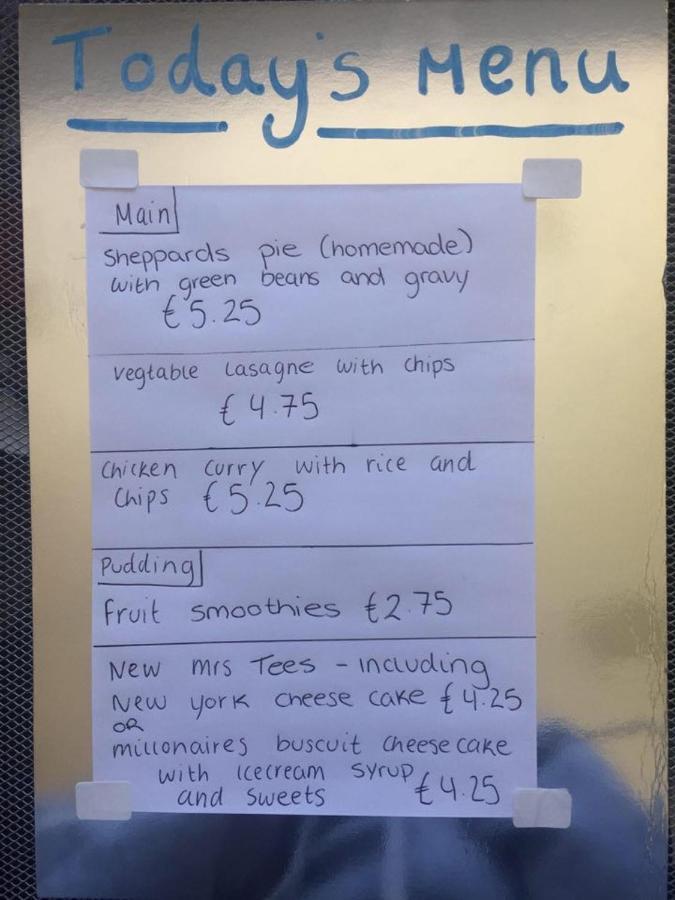 Today's Menu
Main
Sheppards pie (homemade)
with green beans and gravy
£5.25
vegtable Lasagne with chips
£4.75
Chicken curry with rice and
Chips £5.25
Pudding
fruit smoothies £2.75
New mrs Tees - including
New york cheese cake £4.25
OR
millonaires buscuit cheese cake
with icecream syrup
and sweets £4.25